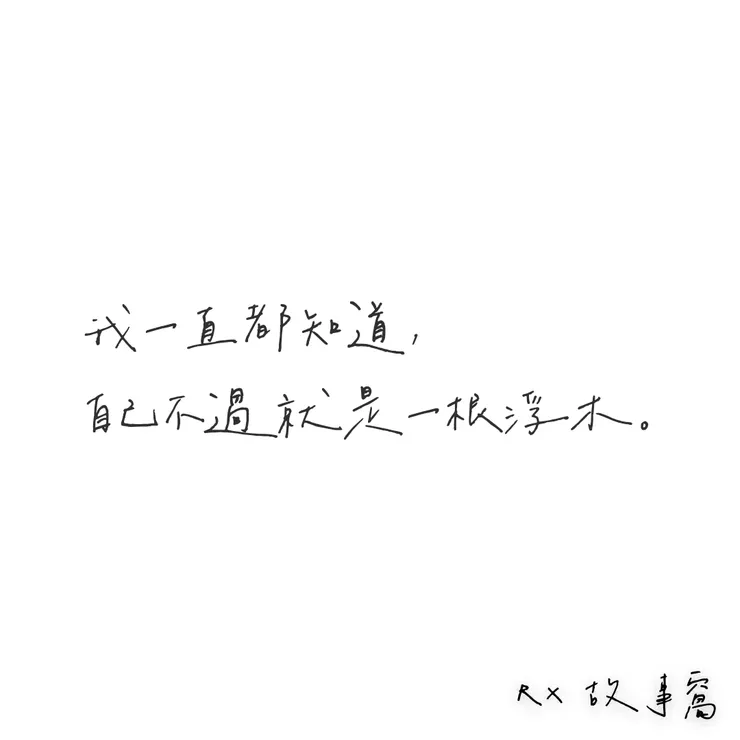 我一直都知道,
自己不過就是一根浮木。
RX 故事窩